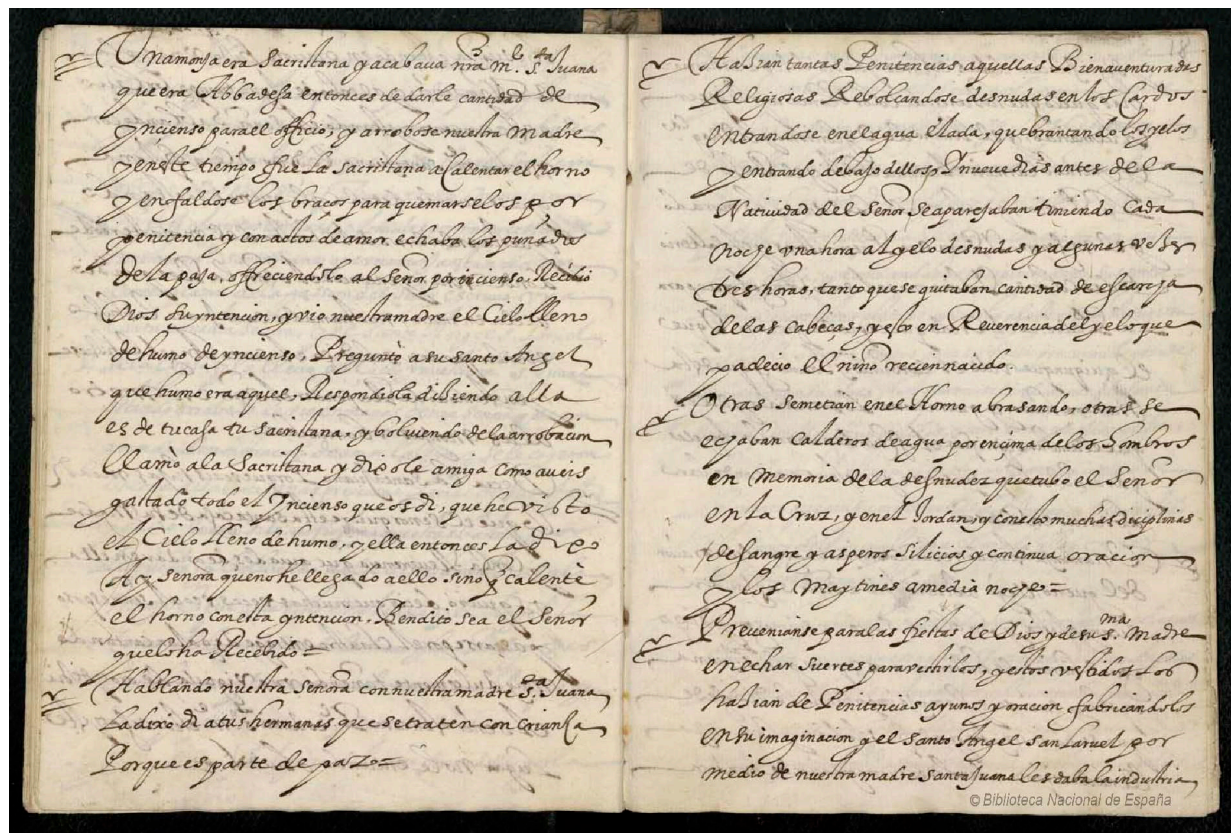 Una monja era Sacristana y acabava nrã M.e S.ta Juana
que era Abbadesa entonces de darle cantidad de
yncienso para el officio, y arrobose nuestra Madre
y en este tiempo fue La sacristana a Calentar el horno
y enfaldose los braços para quemarselos por
penitencia y con actos de amor echaba los puñados
de la paja, offreciendolo al Señor por incienso, Recibio
Dios su yntencion, y vio nuestra madre el Cielo lleno
de humo de yncienso, Preguntò a su santo Angel
que humo era aquel, Respondiola disiendo alla
es de tu casa tu Sacristana, y bolviendo de la arrobacion
llamò a la Sacristana y dixole amiga como aveis
gastado todo el Yncienso que os di, que he visto
el Cielo lleno de humo, y ella entonces la dixo
Ay señora que no he llegado a ello sino q̃ calentè
el horno con esta yntencion. Bendito sea el Señor
que lo ha Recebido =
Hablando nuestra Señora con nuestra madre S.ta Juana
La dixo di a tus hermanas que se traten con criansa
Porque es parte de paz =
18
Hasian tantas Penitencias aquellas Bienaventuradas
Religiosas Rebolcandose desnudas en los Cardos
entrandose en el agua elada, quebrantando los yelos
y entrando debajo dellos, Y nueve dias antes de la
Natividad del Señor Se aparejaban tiniendo Cada
noche una hora al yelo desnudas y algunas veses
tres horas, tanto que se quitaban cantidad de escarcha
de las cabeças, y esto en Reverencia del yelo que
padecio El niño recien nacido.
Otras Se metian en el Horno abrasando, otras se
echaban Calderos de agua por ençima de los hombros
en Memoria de la desnudez que tubo el Señor
en la Cruz, y en el Jordan, y con esto muchas diciplinas
de sangre y asperos silicios y continua oracion
y los Maytines a media noche =
Prevenianse para las fiestas de Dios y de su S.ma Madre
en echar suertes para vestirlos, y estos vestidos Los
hasian de Penitencias ayunos y oracion fabricandolos
en su imaginacion y el Santo Angel san Laruel por
medio de nuestra madre Santa Juana les daba la industria
© Biblioteca Nacional de España